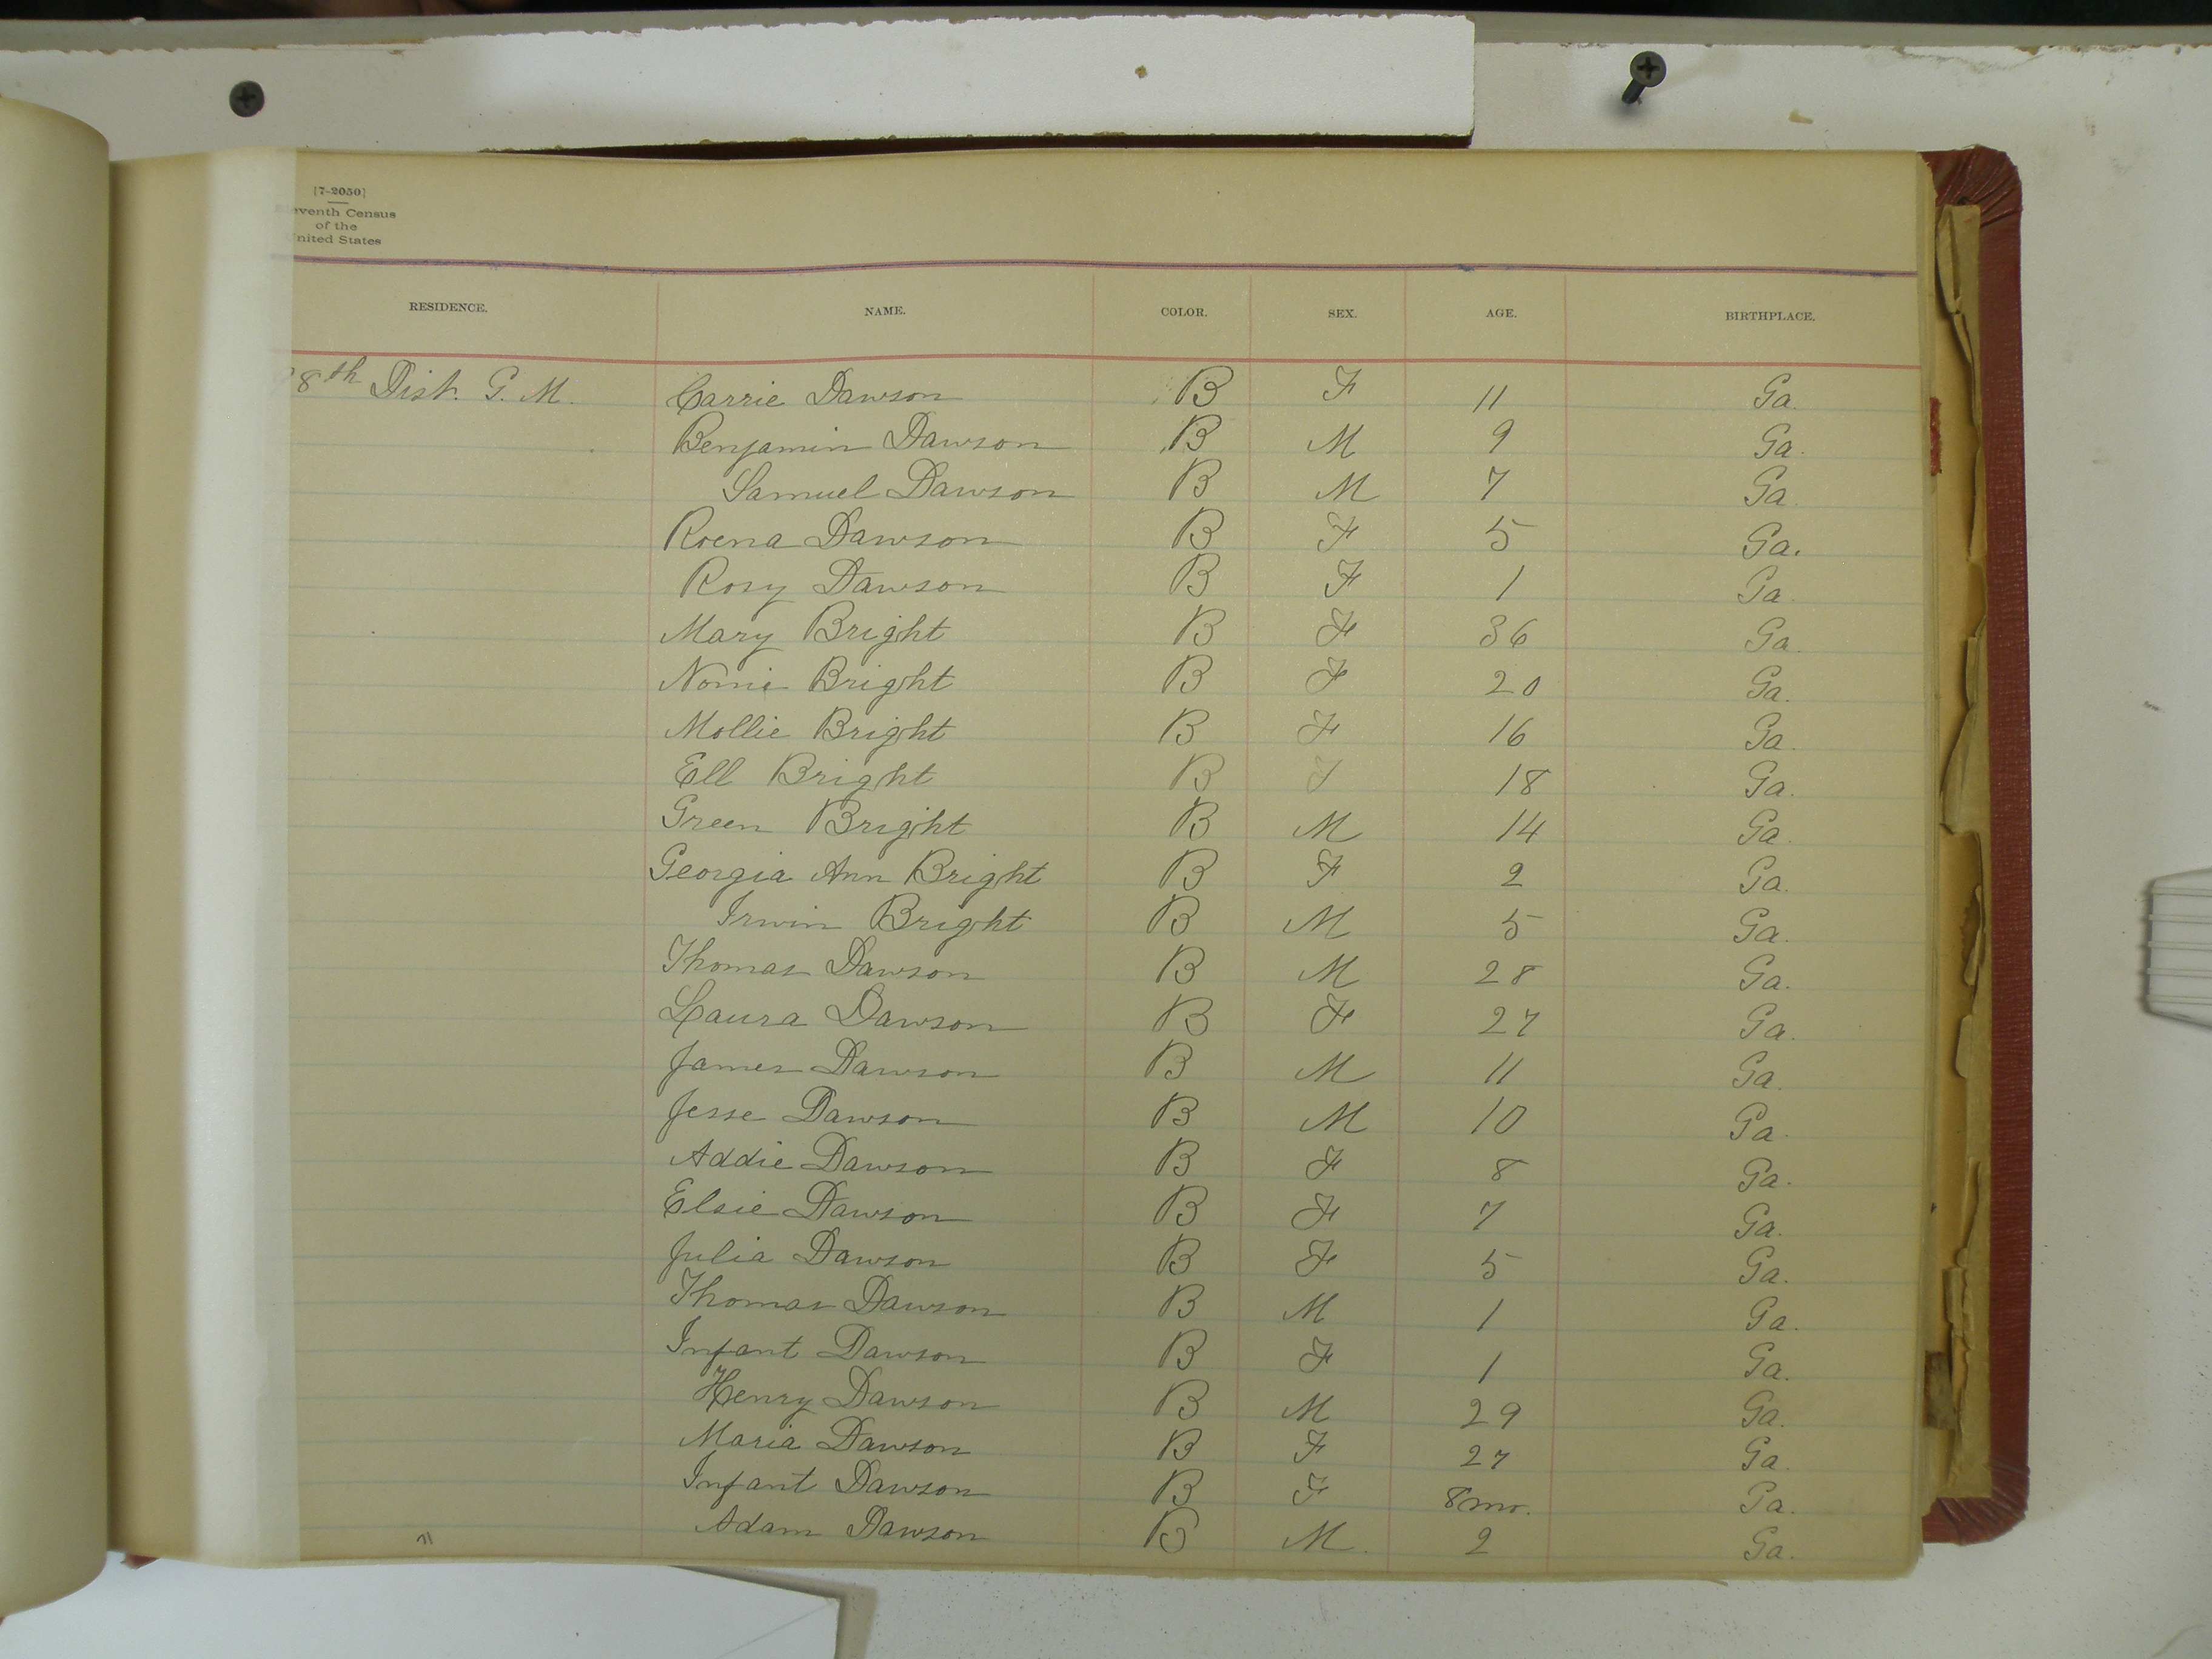 [7-2050]
eventh Census
of the
nited States
RESIDENCE. NAME. COLOR. SEX. AGE. BIRTHPLACE.
8th Dist. G. M. Carrie Dawson B F 11 Ga.
Benjamin Dawson B M 9 Ga.
Samuel Dawson B M 7 Ga.
Roena Dawson B F 5 Ga.
Rosy Dawson B F 1 Ga.
Mary Bright B F 36 Ga.
Nomie Bright B F 20 Ga.
Mollie Bright B F 16 Ga.
Ell Bright B F 18 Ga.
Green Bright B M 14 Ga.
Georgia Ann Bright B F 2 Ga.
Irwin Bright B M 5 Ga.
Thomas Dawson B M 28 Ga.
Laura Dawson B F 27 Ga.
James Dawson B M 11 Ga.
Jesse Dawson B M 10 Ga.
Addie Dawson B F 8 Ga.
Elsie Dawson B F 7 Ga.
Julia Dawson B F 5 Ga.
Thomas Dawson B M 1 Ga.
Infant Dawson B F 1 Ga.
Henry Dawson B M 29 Ga.
Maria Dawson B F 27 Ga.
Infant Dawson B F 8 mo. Ga.
Adam Dawson B M. 2 Ga.